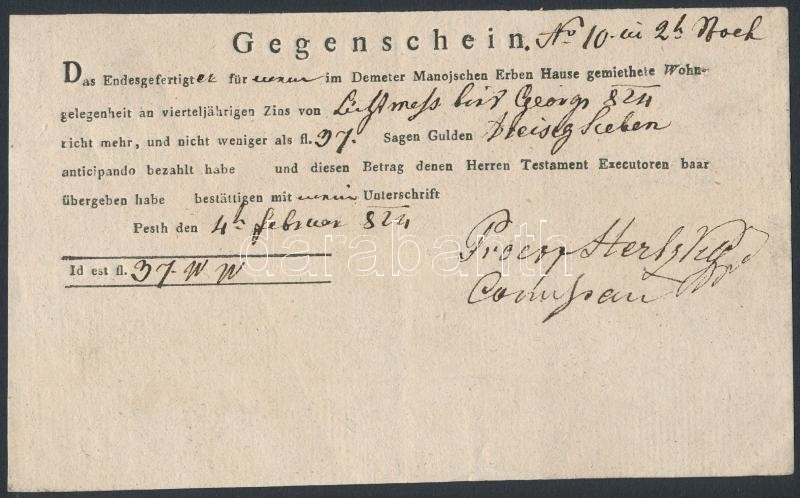 Gegenschein. No 10. in 2t Stock
Das Endesgefertigter für meine im Demeter Manojschen Erben Hause gemiethete Wohn-
gelegenheit an vierteljährigen Zins von Lichtmess bis Georgi 824
richt mehr, und nicht weniger als fl. 37. Sagen Gulden dreisig Sieben
anticipando bezahlt habe und diesen Betrag denen Herren Testament Executoren baar
übergeben habe bestättigen mit meine Unterschrift
Pesth den 4t februar 824
Id est fl. 37. W W
darabanth